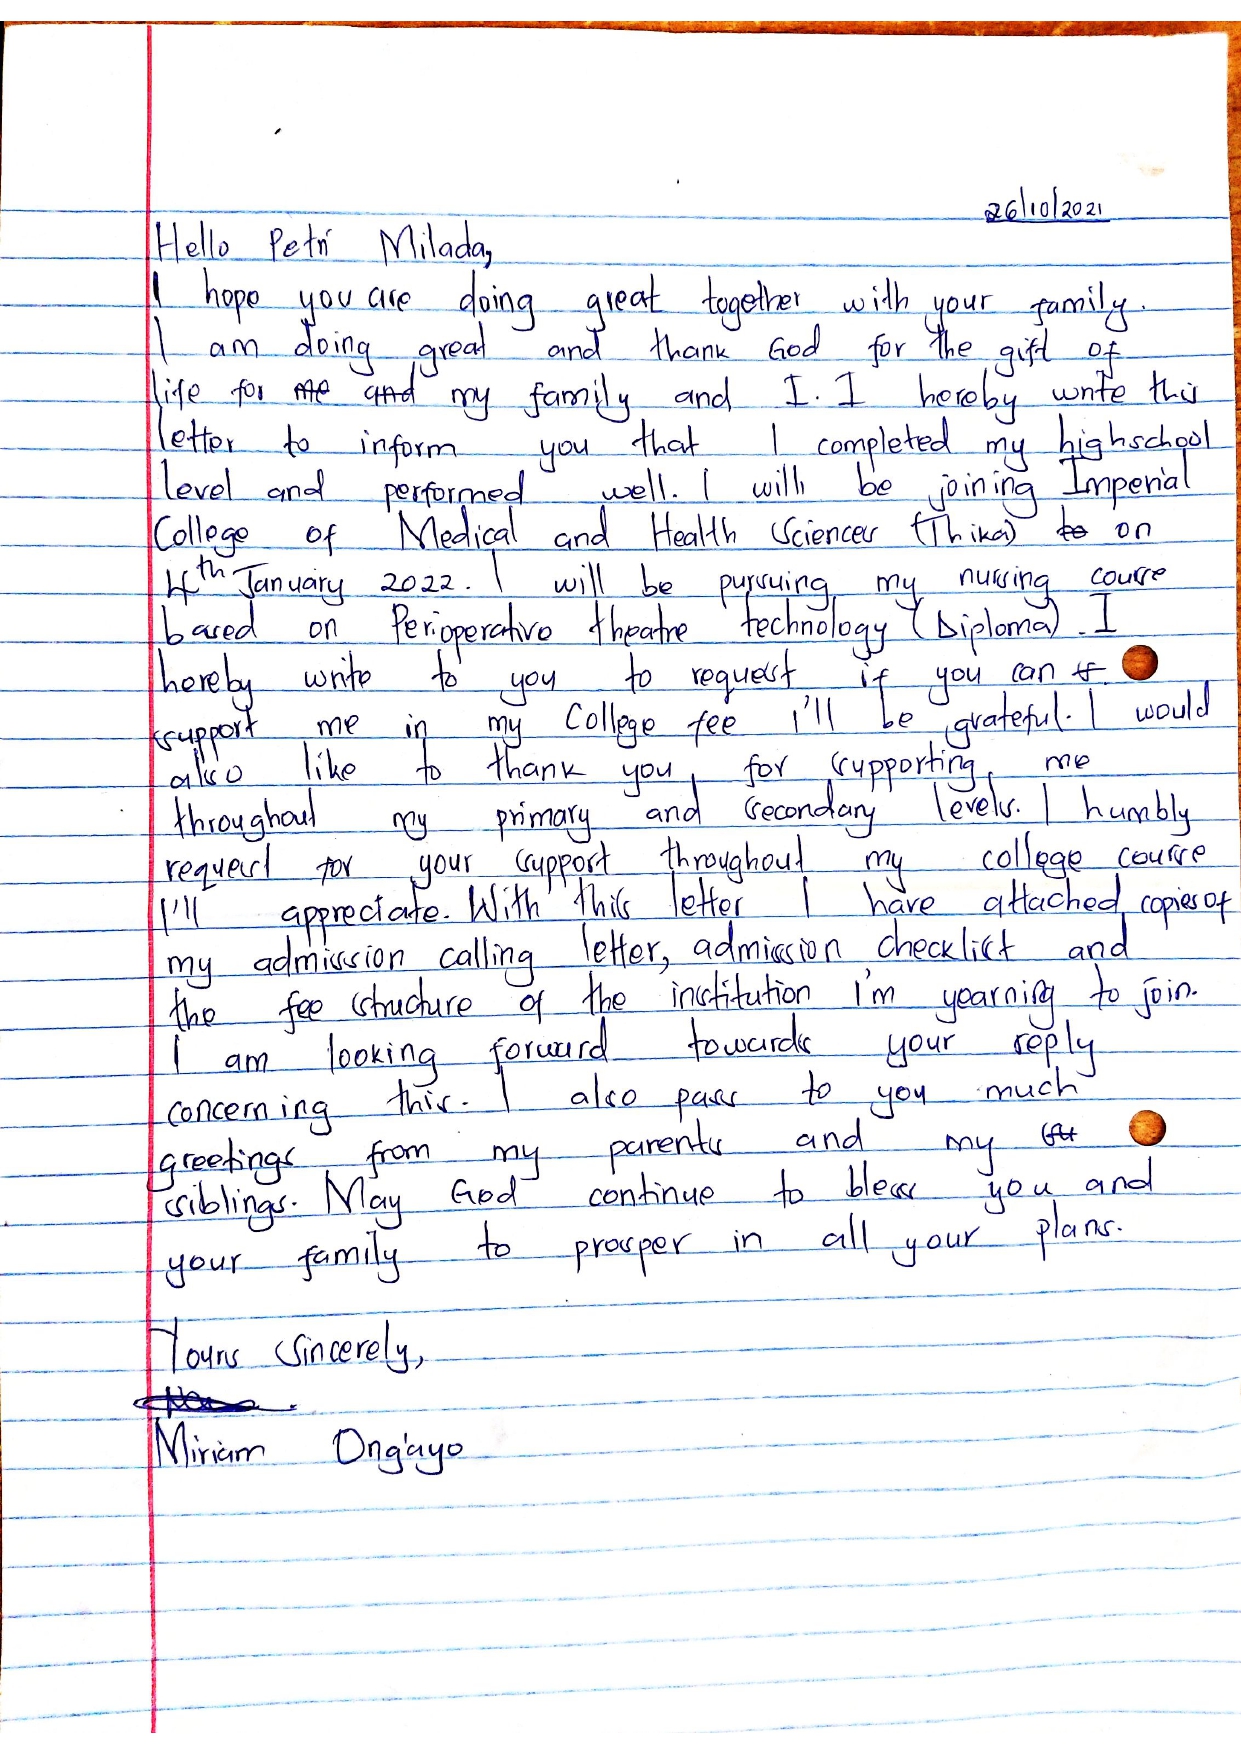 26/10/2021
Hello Petri Milada,
I hope you are doing great together with your family.
I am doing great and thank God for the gift of
life for me and my family and I. I hereby write this
letter to inform you that I completed my highschool
level and performed well. I will be joining Imperial
College of Medical and Health Sciences (Thika) to on
4th January 2022. I will be pursuing my nursing course
based on Perioperative theatre technology (Diploma). I
hereby write to you to request if you can
support me in my College fee I'll be grateful. I would
also like to thank you for supporting me
throughout my primary and secondary levels. I humbly
request for your support throughout my college course
I'll appreciate. With this letter I have attached copies of
my admission calling letter, admission checklist and
the fee structure of the institution I'm yearning to join.
I am looking forward towards your reply
concerning this. I also pass to you much
greetings from my parents and my
siblings. May God continue to bless you and
your family to prosper in all your plans.
Yours Sincerely,
Miriam Ong'ayo